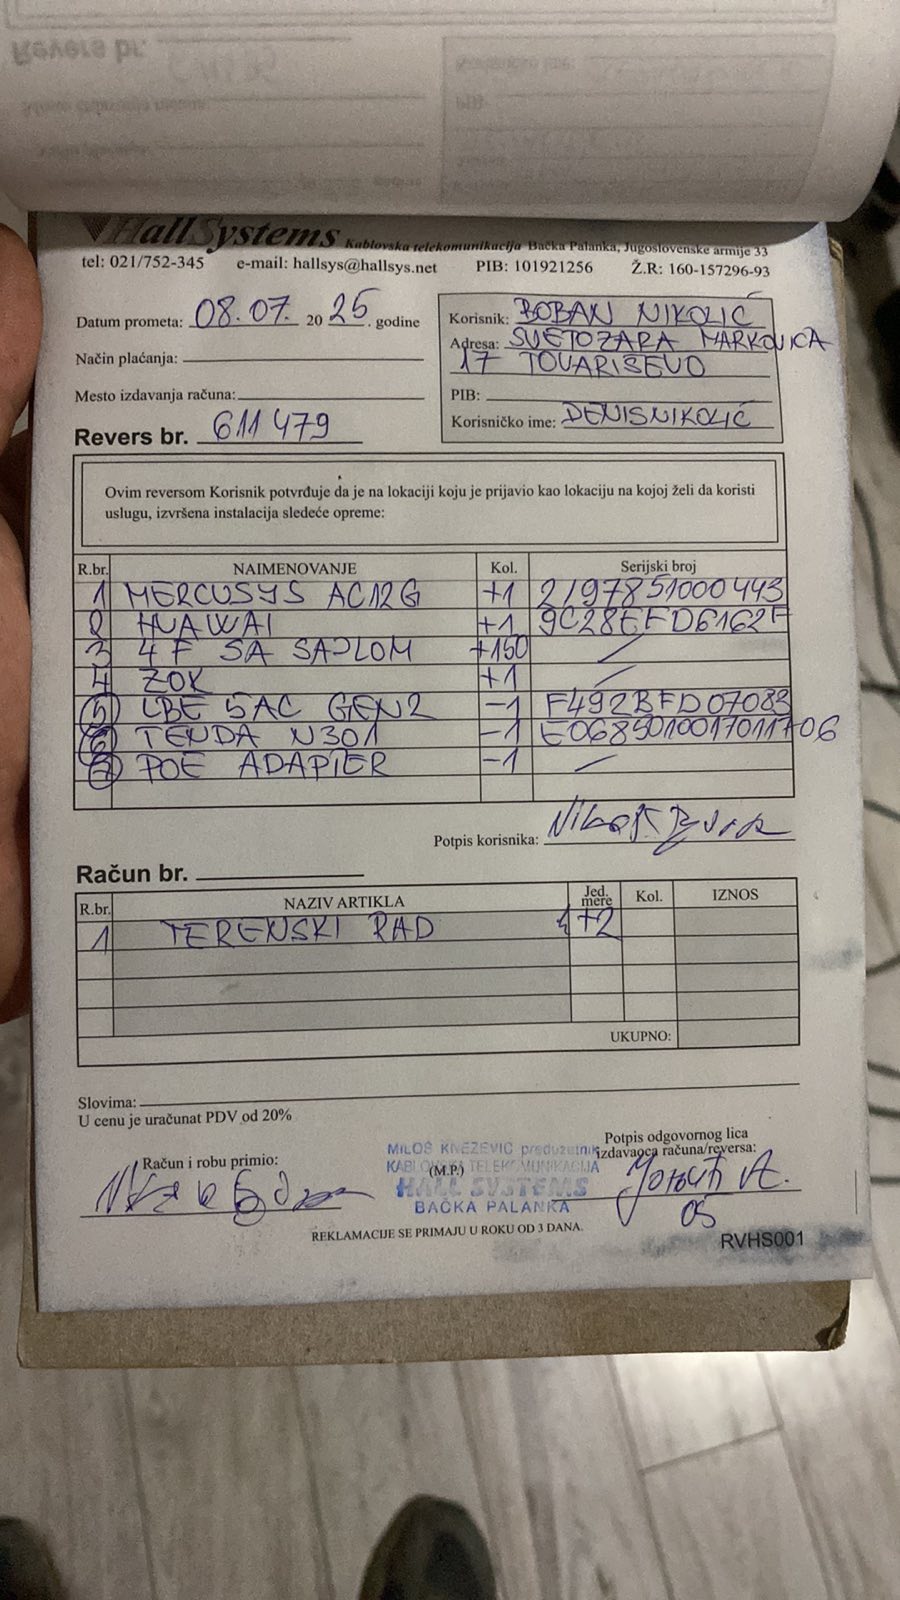 HallSystems Kablovska telekomunikacija Bačka Palanka, Jugoslovenske armije 33
tel: 021/752-345 e-mail: hallsys@hallsys.net PIB: 101921256 Ž.R: 160-157296-93
Datum prometa: 08.07. 20 25. godine
Način plaćanja:
Mesto izdavanja računa:
Revers br. 611479
Korisnik: BOBAN NIKOLIĆ
Adresa: SVETOZARA MARKOVICA
17 TOVARISEVO
PIB:
Korisničko ime: DENISNIKOLIĆ
Ovim reversom Korisnik potvrđuje da je na lokaciji koju je prijavio kao lokaciju na kojoj želi da koristi
uslugu, izvršena instalacija sledeće opreme:
R.br. NAIMENOVANJE Kol. Serijski broj
1 MERCUSYS AC12G +1 2197851000443
2 HUAWAI +1 9C28EFD6162F
3 4F SA SAJLOM +150 /
4 ZOK +1 /
5 LBE 5AC GEN2 -1 F492BFD07083
6 TENDA N301 -1 E0689010017011706
7 POE ADAPTER -1 /
Potpis korisnika:
Račun br.
R.br. NAZIV ARTIKLA Jed. mere Kol. IZNOS
1 TERENSKI RAD +2
UKUPNO:
Slovima:
U cenu je uračunat PDV od 20%
Račun i robu primio:
MILOŠ KNEŽEVIĆ preduzetnik
KABLOVSKA TELEKOMUNIKACIJA
(M.P.)
HALL SYSTEMS
BAČKA PALANKA
Potpis odgovornog lica
izdavaoca računa/reversa:
REKLAMACIJE SE PRIMAJU U ROKU OD 3 DANA.
RVHS001